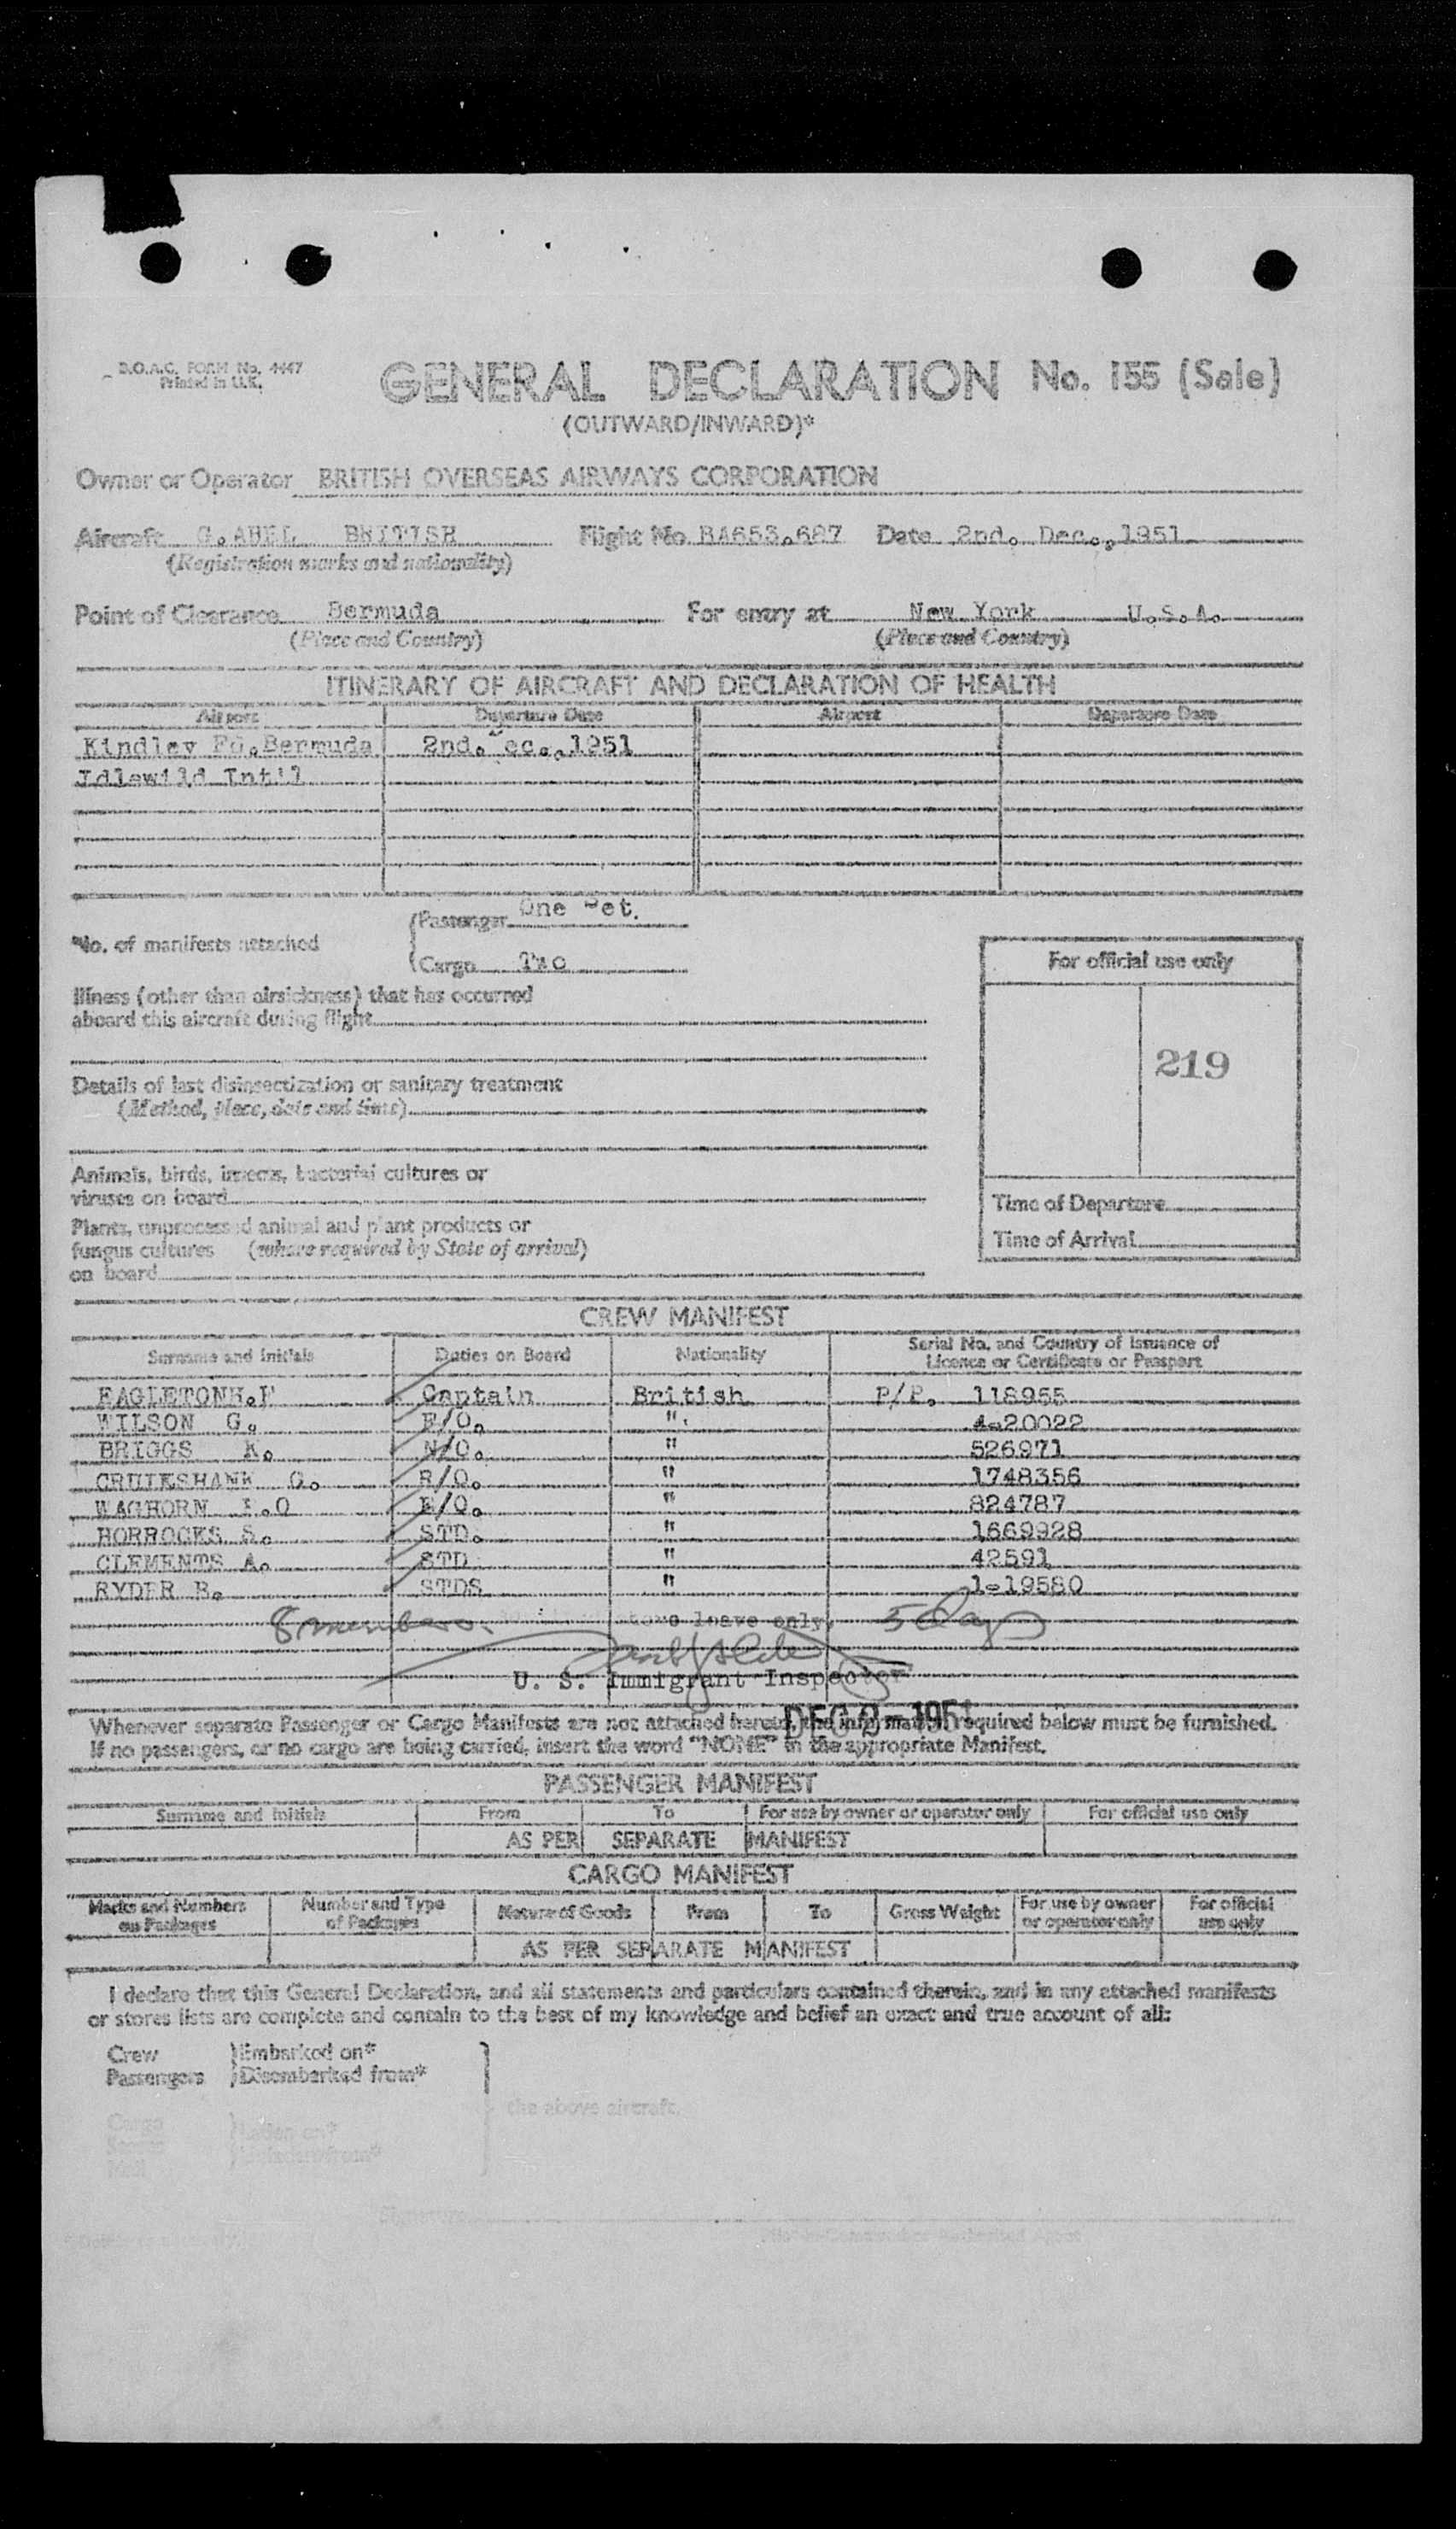 B.O.A.C. FORM No. 4447
Printed in U.K.
GENERAL DECLARATION No. 155 (Sale)
(OUTWARD/INWARD)*
Owner or Operator BRITISH OVERSEAS AIRWAYS CORPORATION
Aircraft G.AHEL BRITISH Flight No. BA653.687 Date 2nd. Dec., 1951
(Registration marks and nationality)
Point of Clearance Bermuda For entry at New York U.S.A.
(Place and Country) (Place and Country)
ITINERARY OF AIRCRAFT AND DECLARATION OF HEALTH
Airport Departure Date Airport Departure Date
Kindley Fd. Bermuda 2nd. ec., 1951
Idlewild Int'l
One et.
(Passenger
*No. of manifests attached
(Cargo Two
For official use only
Illness (other than airsickness) that has occurred
aboard this aircraft during flight
219
Details of last disinsectization or sanitary treatment
(Method, place, date and time)
Animals, birds, insects, bacterial cultures or
viruses on board
Time of Departure
Plants, unprocessed animal and plant products or
fungus cultures (where required by State of arrival)
Time of Arrival
on board
CREW MANIFEST
Surname and Initials Duties on Board Nationality Serial No. and Country of Issuance of
Licence or Certificate or Passport
EAGLETON H.F Captain British P/P. 118955
WILSON G. F/O. " 4-20022
BRIGGS K. N/O. " 526971
CRUIKSHANK G. R/O. " 1748356
WAGHORN O E/O. " 824787
HORROCKS S. STD. " 1669928
CLEMENTS A. STD " 42591
RYDER B. STDS " 1-19580
8 members leave only 5 days
U. S. Immigrant Inspector
DEC 2 - 1951
Whenever separate Passenger or Cargo Manifests are not attached hereto, the information required below must be furnished.
If no passengers, or no cargo are being carried, insert the word "NONE" in the appropriate Manifest.
PASSENGER MANIFEST
Surname and Initials From To For use by owner or operator only For official use only
AS PER SEPARATE MANIFEST
CARGO MANIFEST
Marks and Numbers on Packages Number and Type of Packages Nature of Goods From To Gross Weight For use by owner or operator only For official use only
AS PER SEPARATE MANIFEST
I declare that this General Declaration, and all statements and particulars contained therein, and in any attached manifests
or stores lists are complete and contain to the best of my knowledge and belief an exact and true account of all:
Crew } Embarked on*
Passengers } Disembarked from*
the above aircraft.
Cargo
Stores
Mail
Laden on*
Unladen from*
Signature